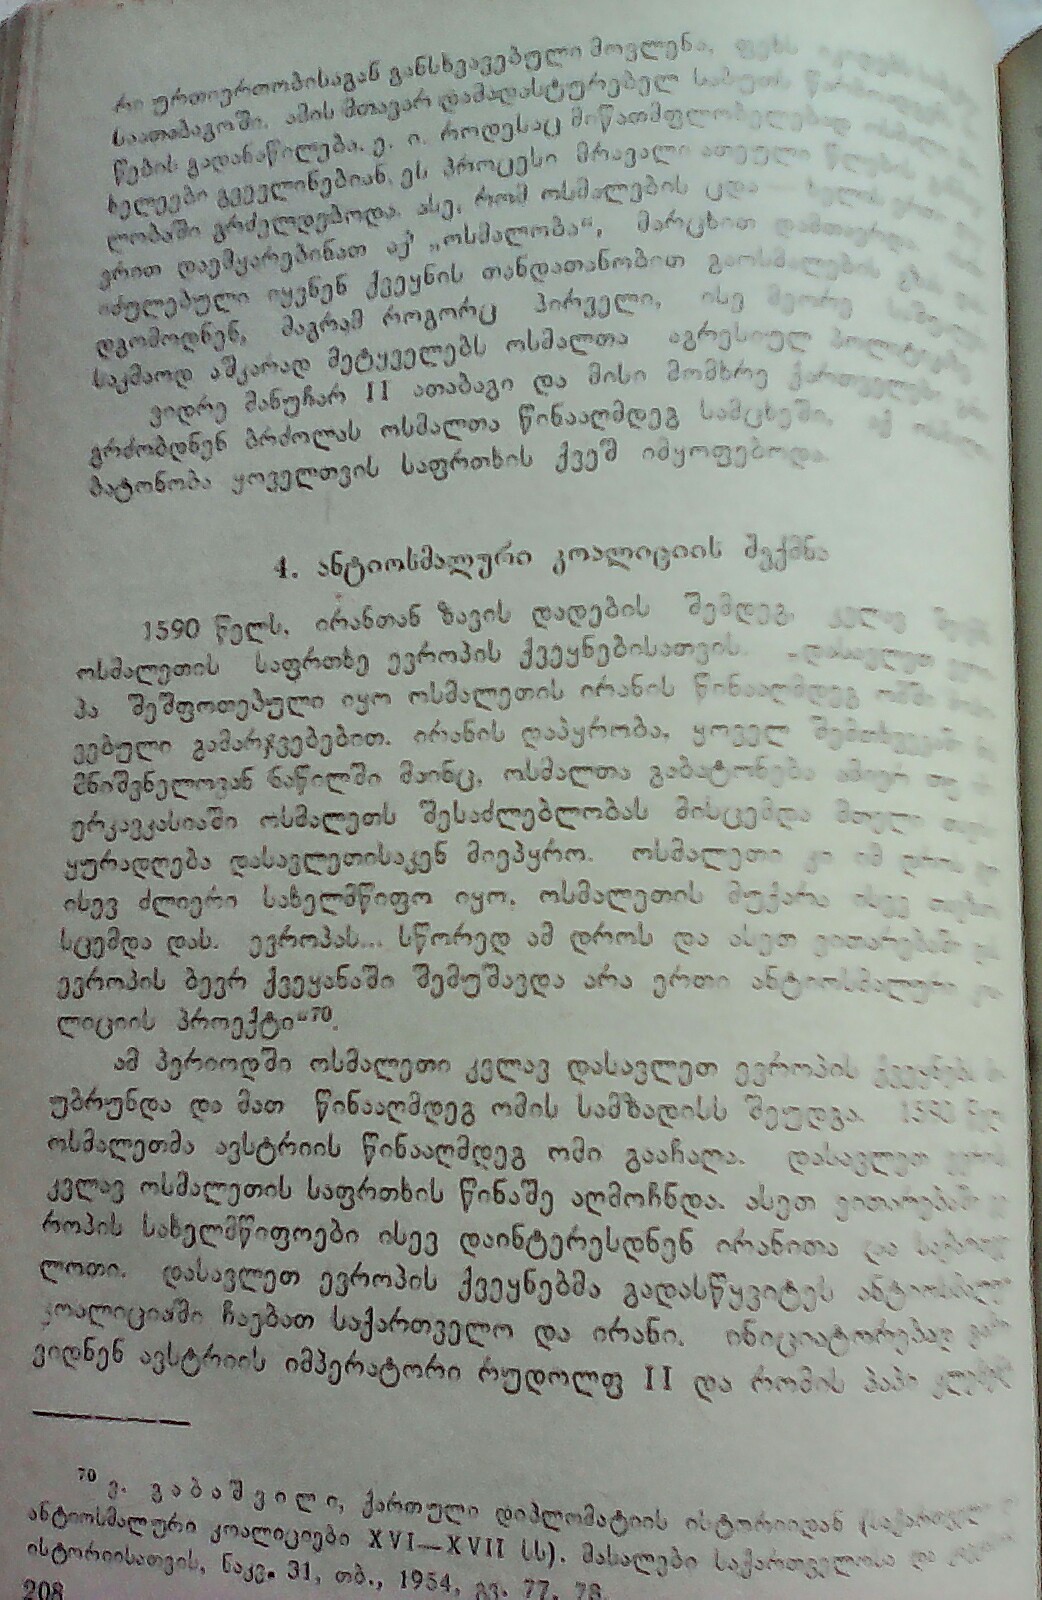 რი ურთიერთობისაგან განსხვავებული მოვლენა, ფეხს
საათაბაგოში. ამის მთავარ დამადასტურებელ საბუთს
წების გადანაწილება. ე. ი. როდესაც მიწათმფლობელებად
ხელები გვევლინებიან. ეს პროცესი მრავალი ათეული წლების
ლობაში გრძელდებოდა. ასე, რომ ოსმალების ცდა
ვრით დაემყარებინათ აქ „ოსმალობა“, მარცხით დამთავრდა.
იძულებული იყვნენ ქვეყნის თანდათანობით გაოსმალების
დგომოდნენ, მაგრამ როგორც პირველი, ისე მეორე
საკმაოდ აშკარად მეტყველებს ოსმალთა აგრესიულ პოლიტიკაზე
ვიდრე მანუჩარ II ათაბაგი და მისი მომხრე ქართველები
გრძობდნენ ბრძოლას ოსმალთა წინააღმდეგ სამცხეში, აქ
ბატონობა ყოველთვის საფრთხის ქვეშ იმყოფებოდა.
4. ანტიოსმალური კოალიციის შექმნა
1590 წელს, ირანთან ზავის დადების შემდეგ, კვლავ
ოსმალეთის საფრთხე ევროპის ქვეყნებისათვის. „დასავლეთ
პა შეშფოთებული იყო ოსმალეთის ირანის წინააღმდეგ ომში
ვებული გამარჯვებებით. ირანის დაპყრობა, ყოველ შემთხვევაში
მნიშვნელოვან ნაწილში მაინც, ოსმალთა გაბატონება ამიერ თუ
ერკავკასიაში ოსმალეთს შესაძლებლობას მისცემდა მთელი
ყურადღება დასავლეთისაკენ მიეპყრო. ოსმალეთი კი იმ დროს
ისევ ძლიერი სახელმწიფო იყო. ოსმალეთის მუქარა ისევ
სცემდა დას. ევროპას... სწორედ ამ დროს და ასეთ ვითარებაში
ევროპის ბევრ ქვეყანაში შემუშავდა არა ერთი ანტიოსმალური
ლიციის პროექტი“⁷⁰.
ამ პერიოდში ოსმალეთი კვლავ დასავლეთ ევროპის ქვეყნებს
უბრუნდა და მათ წინააღმდეგ ომის სამზადისს შეუდგა.
ოსმალეთმა ავსტრიის წინააღმდეგ ომი გააჩაღა. დასავლეთ
კვლავ ოსმალეთის საფრთხის წინაშე აღმოჩნდა. ასეთ ვითარებაში
როპის სახელმწიფოები ისევ დაინტერესდნენ ირანითა და
ლოთი. დასავლეთ ევროპის ქვეყნებმა გადასწყვიტეს
კოალიციაში ჩაებათ საქართველო და ირანი. ინიციატორებად
ვიდნენ ავსტრიის იმპერატორი რუდოლფ II და რომის პაპი
⁷⁰ ვ. გაბაშვილი, ქართული დიპლომატიის ისტორიიდან
ანტიოსმალური კოალიციები XVI—XVII სს). მასალები საქართველოსა და
ისტორიისათვის, ნაკვ. 31, თბ., 1954, გვ. 77,
208